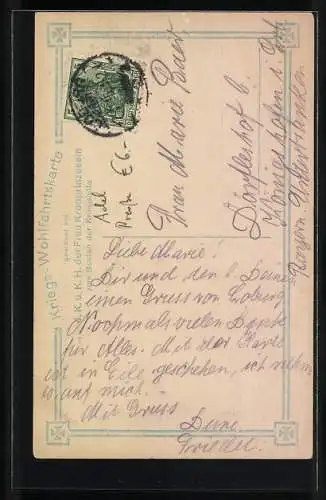 Kriegs-Wohlfahrtskarte
I. K. u. K. H. der Frau Kronprinzessin
zum Besten der Kriegshilfe
Adel
Preuße
€ 6.-
Frau Marie
Dörfleshof b.
Königshofen i.
Bayern Unterfranken
Liebe Marie!
Dir und den l. Deinen
einen Gruss von Coburg
Nochmals vielen Dank
für Alles. Mit der Karte
ist in Eile geschehen, ich
es auf mich.
Mit Gruss
Deine
Friedel